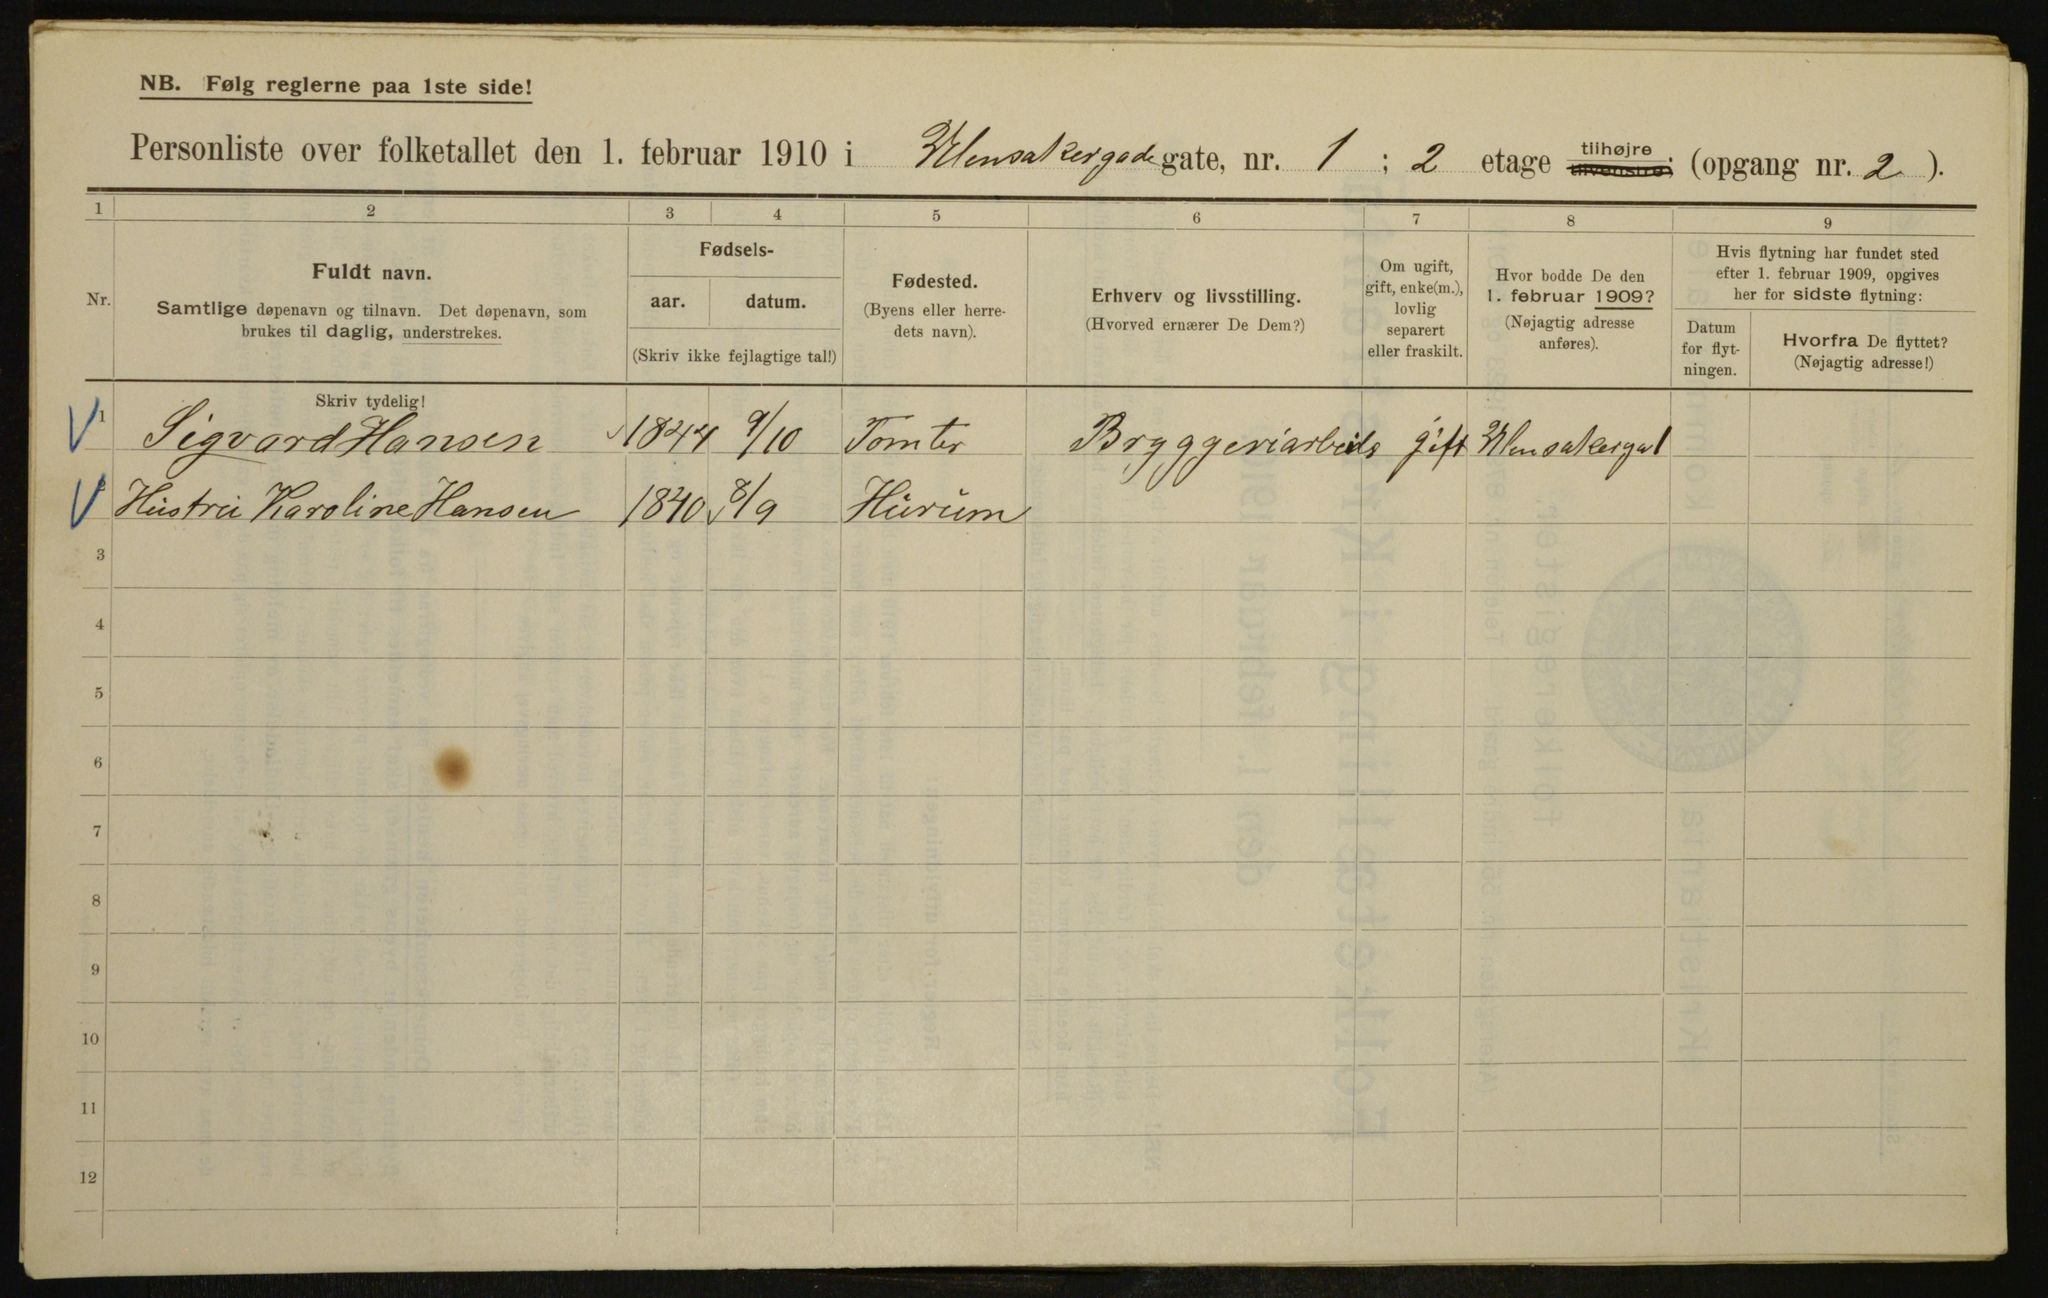 NB. Følg reglerne paa 1ste side!
Personliste over folketallet den 1. februar 1910 i Ulensakergade gate, nr. 1 ; 2 etage tilhøjre tilvenstre; (opgang nr. 2 ).
1 2 3 4 5 6 7 8 9
Nr.
Fuldt navn.
Samtlige døpenavn og tilnavn. Det døpenavn, som
brukes til daglig, understrekes.
Fødsels-
aar. datum.
(Skriv ikke fejlagtige tal!)
Fødested.
(Byens eller herre-
dets navn).
Erhverv og livsstilling.
(Hvorved ernærer De Dem?)
Om ugift,
gift, enke(m.),
lovlig
separert
eller fraskilt.
Hvor bodde De den
1. februar 1909?
(Nøjagtig adresse
anføres).
Hvis flytning har fundet sted
efter 1. februar 1909, opgives
her for sidste flytning:
Datum
for flyt-
ningen.
Hvorfra De flyttet?
(Nøjagtig adresse!)
Skriv tydelig!
1 Sigvard Hansen 1844 9/10 Tomter Bryggeriarbeids gift Ulensakergat
Hustru Karoline Hansen 1840 8/9 Hurum
3
4
5
6
7
8
9
10
11
12